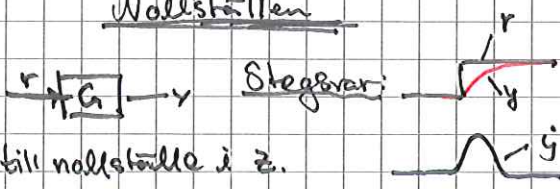 Nollställen
r G y Stegsvar: r
y
till nollställe i z. ẏ